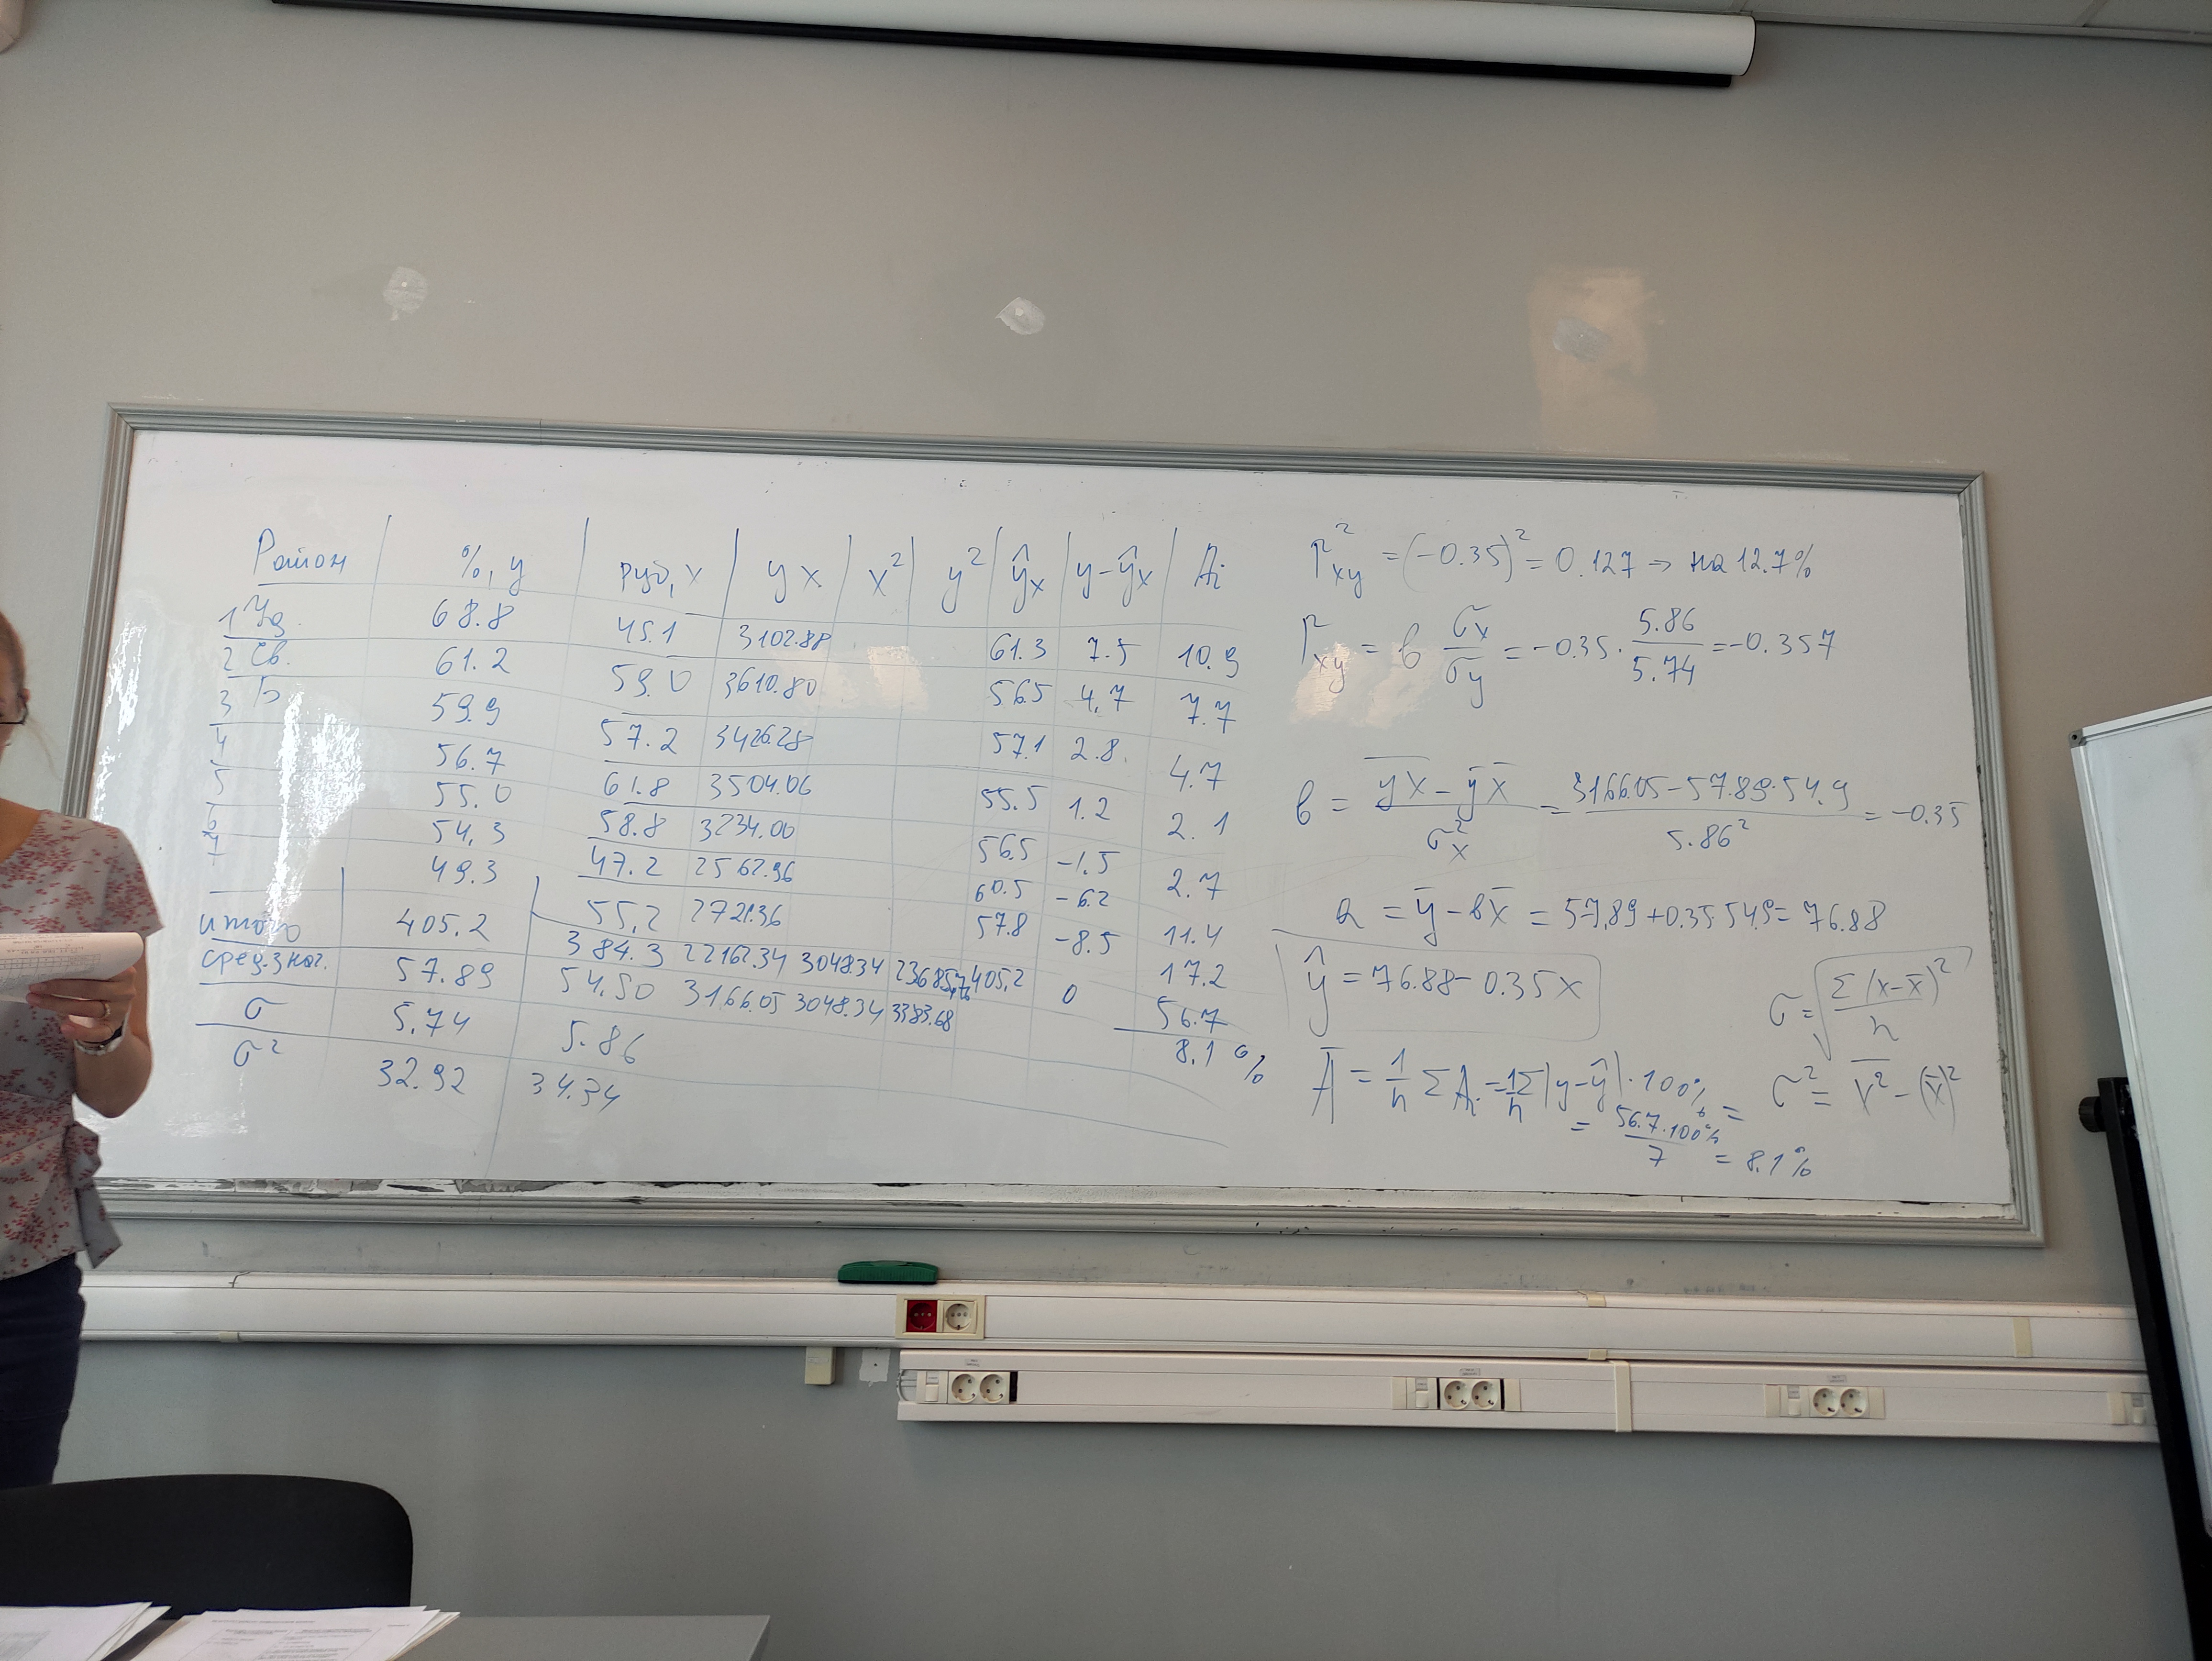 Район | %, y | руб, x | yx | x² | y² | ŷₓ | y-ŷₓ | Ai
1 Уд. 68.8 45.1 3102.88 61.3 7.5 10.9
2 Св. 61.2 59.0 3610.80 56.5 4.7 7.7
3 Б 59.9 57.2 3426.28 57.1 2.8 4.7
4 56.7 61.8 3504.06 55.5 1.2 2.1
5 55.0 58.8 3234.00 56.5 -1.5 2.7
6 54,3 47.2 2562.96 60.5 -6.2 11.4
7 49.3 55,2 2721.36 57.8 -8.5 17.2
итого 405.2 384.3 22162.34 3048.34 405,2 0 56.7
сред.знач. 57.89 54.90 3166.05 3048.34 3383.68 8.1 %
σ 5.74 5.86
σ² 32.92 34.34
r²xy = (-0.35)² = 0.127 → на 12.7%
rxy = в σx/σy = -0.35 · 5.86/5.74 = -0.357
в = (yx - ȳ x̄)/σ²x = (3166.05 - 57.89·54.9)/5.86² = -0.35
a = ȳ - вx̄ = 57,89 + 0.35·54.9 = 76.88
ŷ = 76.88 - 0.35x
σ = √(Σ(x-x̄)²/n)
Ā = 1/n ΣAi = 1/n Σ|y-ŷ|·100% =
= 56.7·100%/7 = 8.1%
σ² = x̄² - (x̄)²